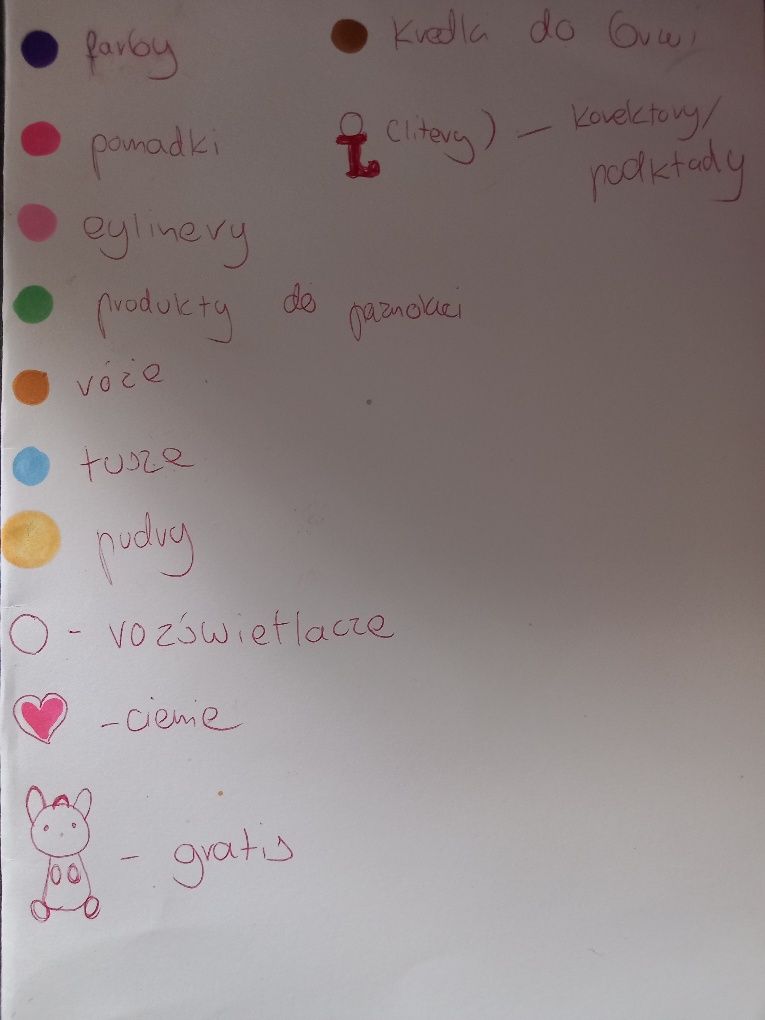 farby
kredla do brwi
pomadki
L (litery) - korektory/
podkłady
eylinery
produkty do paznokci
róże
tusze
pudry
- rozświetlacze
- cienie
- gratis